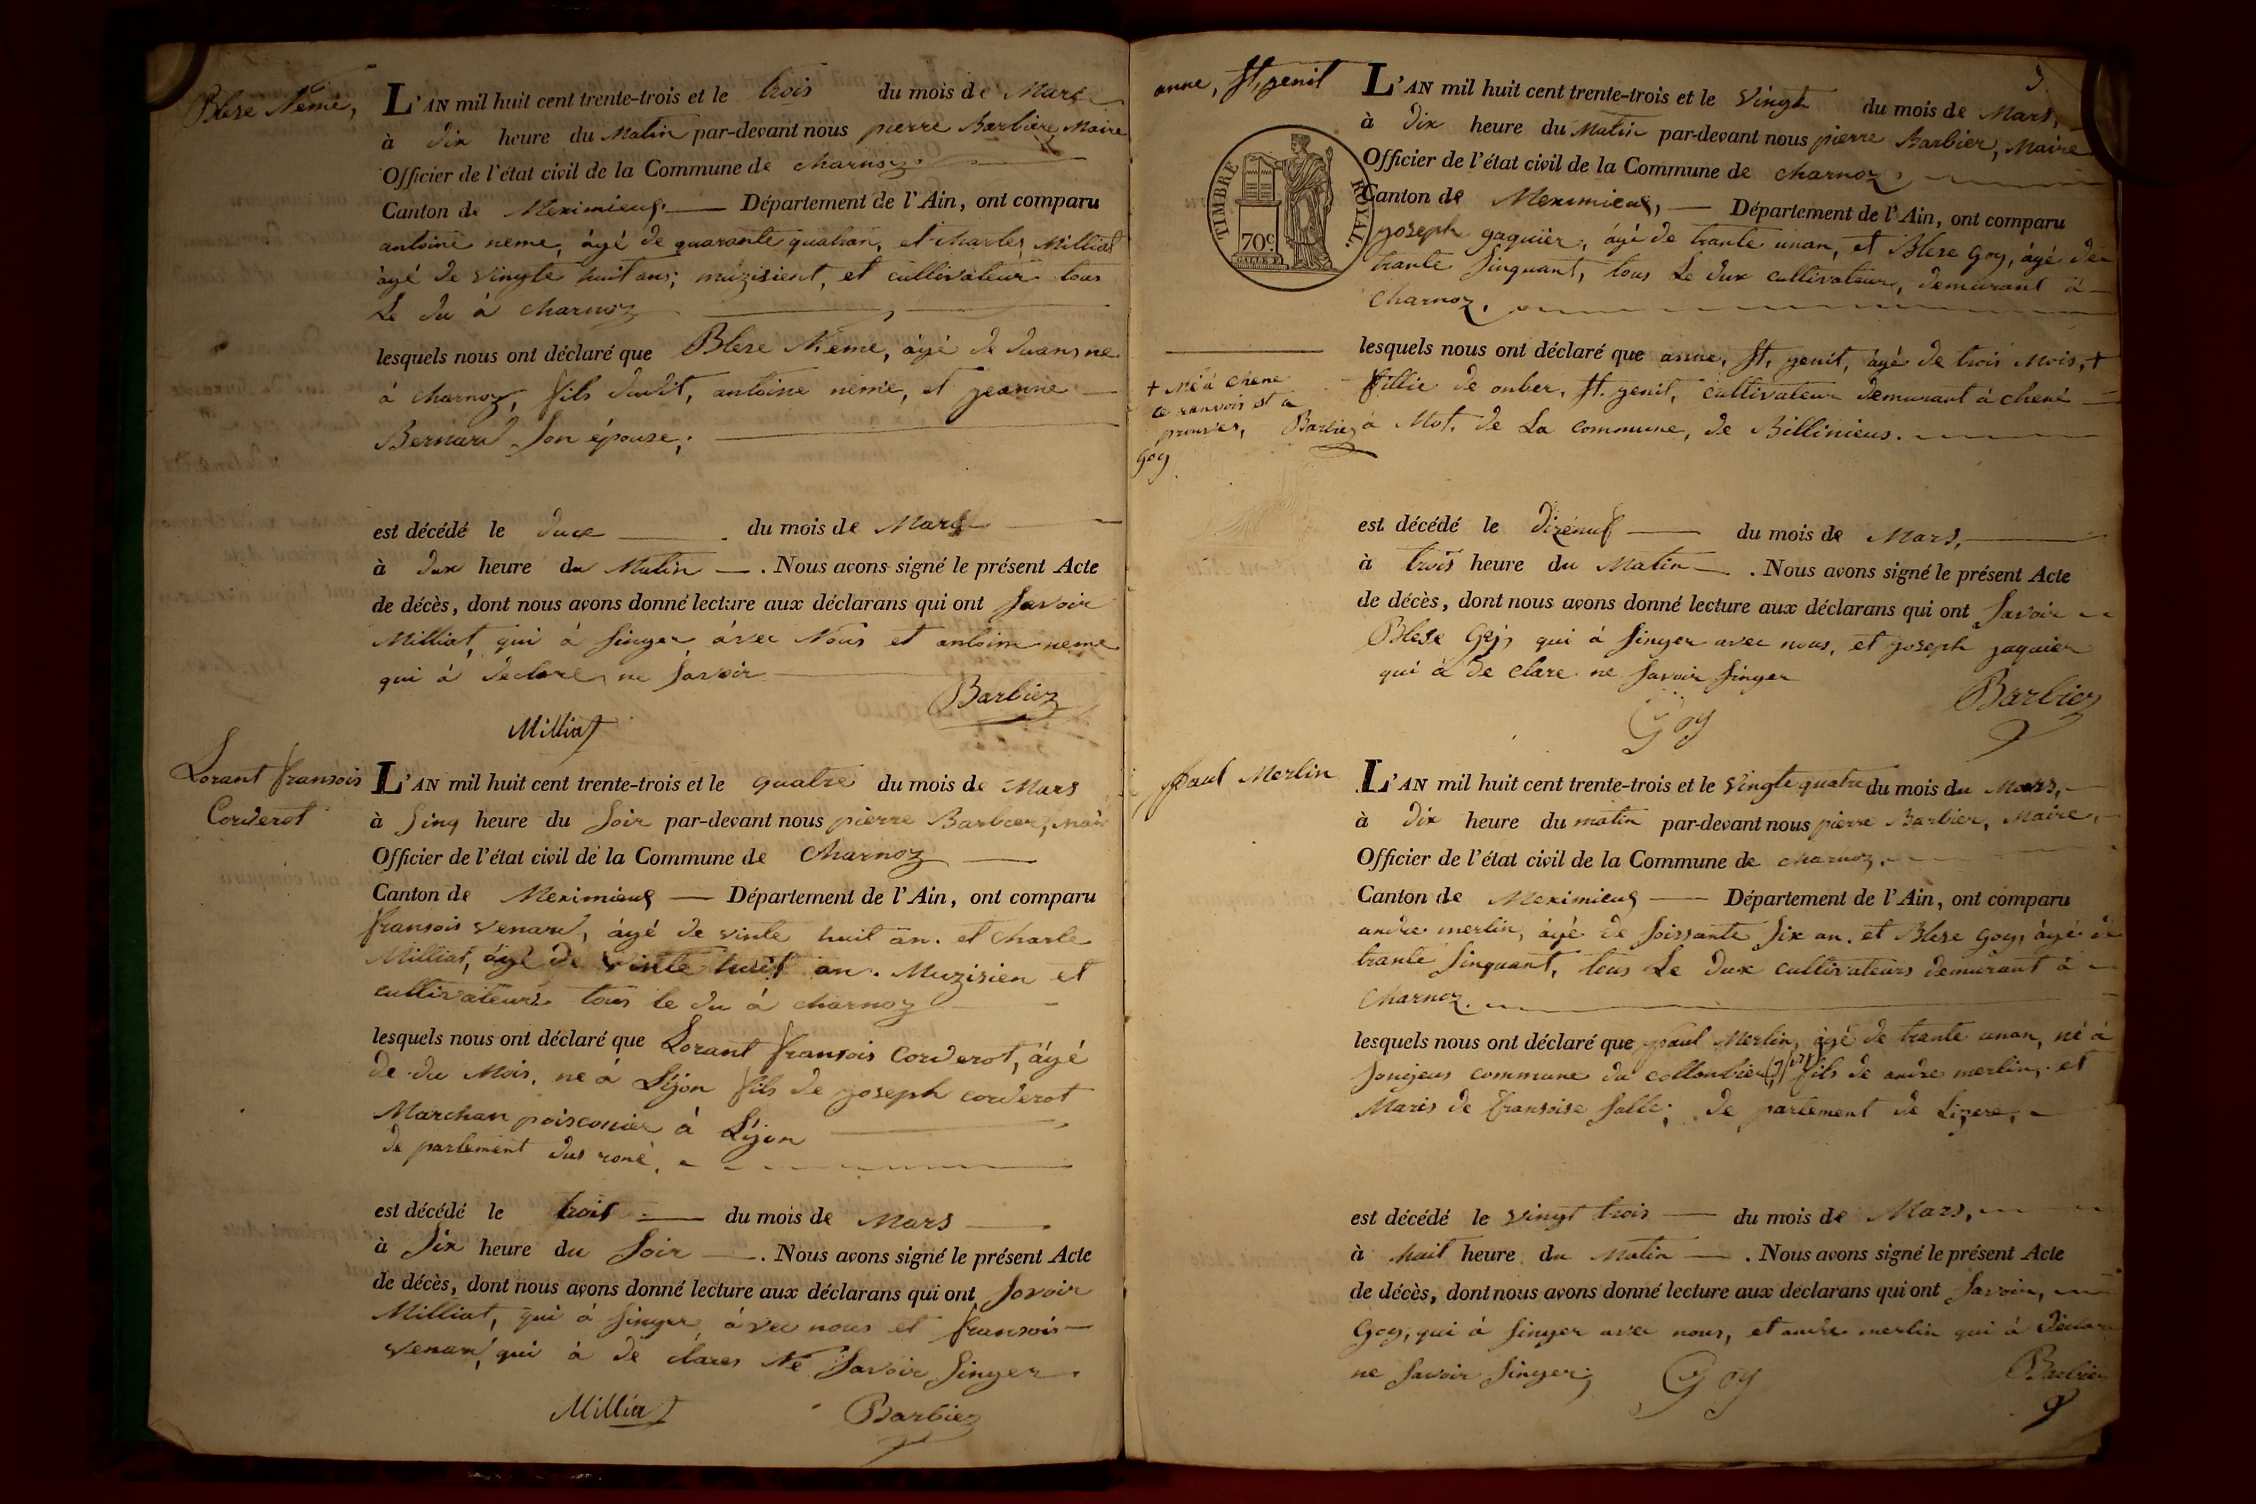 Blese Néme,
L'AN mil huit cent trente-trois et le trois du mois de Mars
à dix heure du Matin par-devant nous pierre Barbier, Maire
Officier de l'état civil de la Commune de charnoz
Canton de Meximieux Département de l'Ain, ont comparu
antoine neme, âgé de quarante quatran, et charles Milliat
âgé de vingte huit ans; muzisient, et cultivateur tous
Le du à charnoz
lesquels nous ont déclaré que Blese Neme, âgé de duans ne
à charnoz, fils dudit, antoine neme, et jeanne
Bernard son épouse;
est décédé le duce du mois de Mars
à dux heure du Matin. Nous avons signé le présent Acte
de décès, dont nous avons donné lecture aux déclarans qui ont savoir
Milliat, qui à singer avec Nous et antoine neme
qui à declare, ne savoir
Barbier
Milliat
Lorant fransois
Corderot
L'AN mil huit cent trente-trois et le quatre du mois de Mars
à sinq heure du soir par-devant nous pierre Barbier, mair
Officier de l'état civil de la Commune de Charnoz
Canton de Meximieux Département de l'Ain, ont comparu
fransois venard, âgé de vinte huit an. et charle
Milliat, âgé de vinte huit an. Muzisien et
cultivateurs tous le du à charnoz
lesquels nous ont déclaré que Lorant fransois Corderot, âgé
de du Mois, ne à Lijon fils de joseph corderot
Marchan poisconier à Lijon
de partement dus rone,
est décédé le trois du mois de Mars
à six heure du soir. Nous avons signé le présent Acte
de décès, dont nous avons donné lecture aux déclarans qui ont savoir
Milliat, qui à singer avec nous et fransois
venard, qui à de clares Ne savoir singer.
Milliat Barbier
anne, st, genit
L'AN mil huit cent trente-trois et le vingt du mois de Mars,
à dix heure du Matin par-devant nous pierre Barbier, Maire
Officier de l'état civil de la Commune de charnoz,
Canton de Meximieux, Département de l'Ain, ont comparu
TIMBRE ROYAL.
70c
joseph gaquier, âgé de trante unan, et Blese Goy, âgé de
trante sinquant, tous Le dux cultivateur, demurant à
charnoz.
lesquels nous ont déclaré que anne, st, genit, âgé de trois Mois, +
fillie de onber, st. genit, cultivateur demurant à chené
à Mot. de La commune, de Billinieus.
+ Né à chene
ce ranvois et a
prouves, Barbier
Goy
est décédé le dizenuf du mois de Mars,
à trois heure du Matin. Nous avons signé le présent Acte
de décès, dont nous avons donné lecture aux déclarans qui ont savoir
Blese Goy, qui à singer avec nous, et joseph jaquier
qui à de clare ne savoir singer
Barbier
Goy
paul Merlin
L'AN mil huit cent trente-trois et le vingte quatre du mois du Mars,
à dix heure du matin par-devant nous pierre Barbier, Maire,
Officier de l'état civil de la Commune de charnoz.
Canton de Meximieux Département de l'Ain, ont comparu
andre merlin, âgé de soissante six an. et Blese Goy, âgé de
trante sinquant, tous Le dux cultivateurs demurant à
charnoz.
lesquels nous ont déclaré que paul Merlin, âgé de trante unan, né à
commune du collonbier, fils de andre merlin, et
Maris de fransoise salle; de partement de Lizere,
est décédé le vingt trois du mois de Mars,
à huit heure du Matin. Nous avons signé le présent Acte
de décès, dont nous avons donné lecture aux déclarans qui ont savoir,
Goy, qui à singer avec nous, et andre merlin qui à déclare
ne savoir singer; Goy Barbier